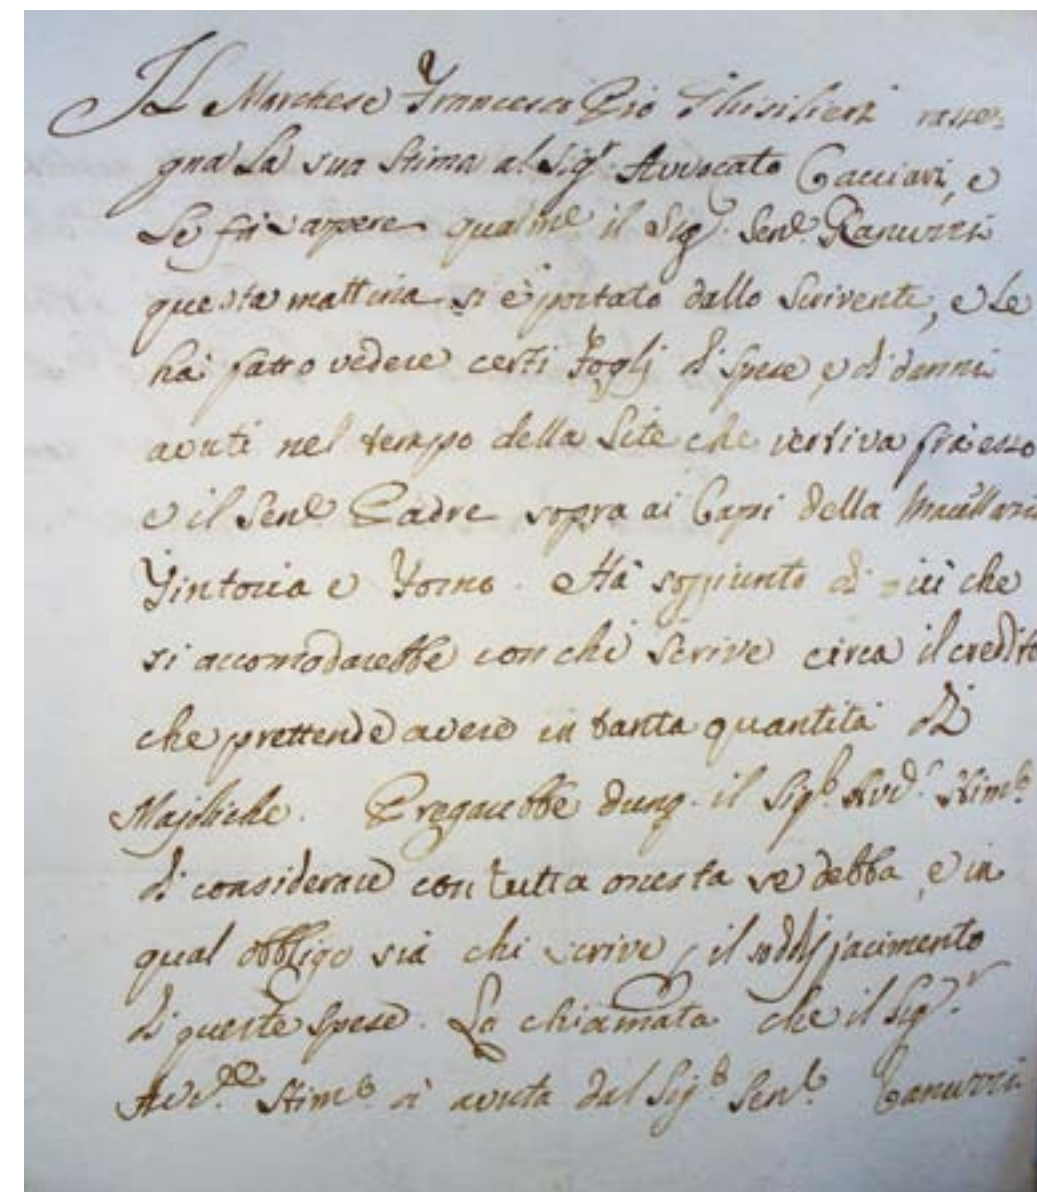 Il Marchese Francesco Pio Ghisilieri rasse-
gna la sua stima al Sig.r Avvocato Cacciari, e
Le fà sapere qualm.e il Sig.r Sen.e Ranuzzi
questa mattina si è portato dallo Scrivente, e Le
hà fatto vedere certi Foglj di Spese, e di danni
avuti nel tempo della Lite che vertiva frà esso
e il Sen.e Padre sopra ai Capi della
Tintoria e Forno. Hà soggiunto di più che
si accomodarebbe con chi Scrive circa il credito
che prettende avere in tanta quantità di
Majoliche. Pregarebbe dunq. il Sig.e Avv.o Stim.o
di considerare con tutta onestà se debba, e in
qual obbligo sia chi scrive, il soddisfacimento
di queste spese. La chiamata che il Sig.r
Avv.o Stim.o à avuta dal Sig.e Sen.e Ranuzzi